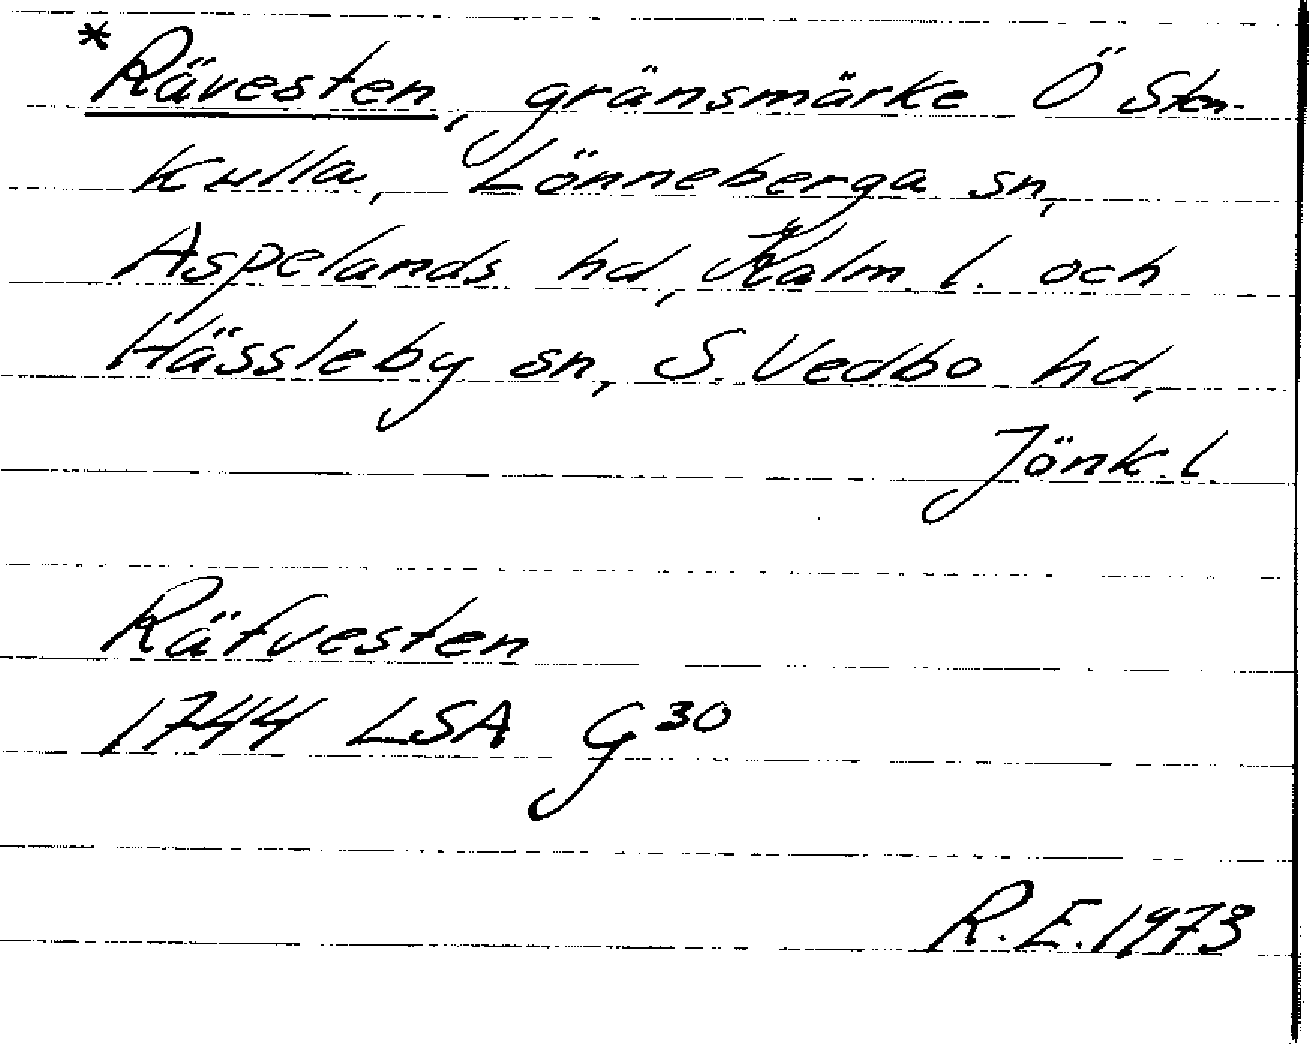 *Rävesten, gränsmärke Ö Sten-
kulla, Lönneberga sn,
Aspelands hd, Kalm. l. och
Hässleby sn, S. Vedbo hd,
Jönk. l.
Räfvesten
1744 LSA G³⁰
R.E. 1973